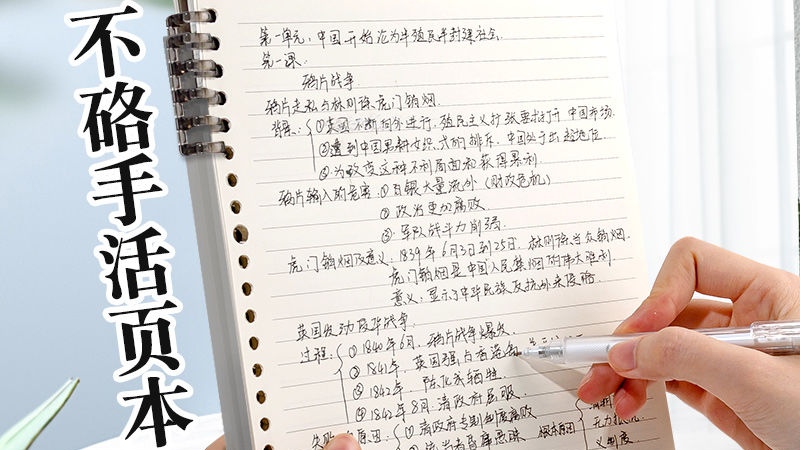 不硌手活页本
第一单元：中国开始沦为半殖民半封建社会
第一课：
鸦片战争
鸦片走私与林则徐虎门销烟
背景：①英国不断向外进行，殖民主义扩张要求打开中国市场.
②遭到中国男耕女织式的排斥，中国处于出超地位
③为改变这种不利局面和获得暴利
鸦片输入的危害：①白银大量流外（财政危机）
②政治更加腐败
③军队战斗力削弱
虎门销烟及意义：1839年6月3日到25日，林则徐当众销烟.
虎门销烟是中国人民禁烟的伟大胜利.
意义：显示了中华民族反抗外来侵略
英国发动侵华战争
过程：①1840年6月，鸦片战争爆发
②1841年，英国强占香港岛
③1842年，陈化成牺牲.
④1842年8月清政府屈服
失败 原因：①清政府专制制度腐败
根本原因